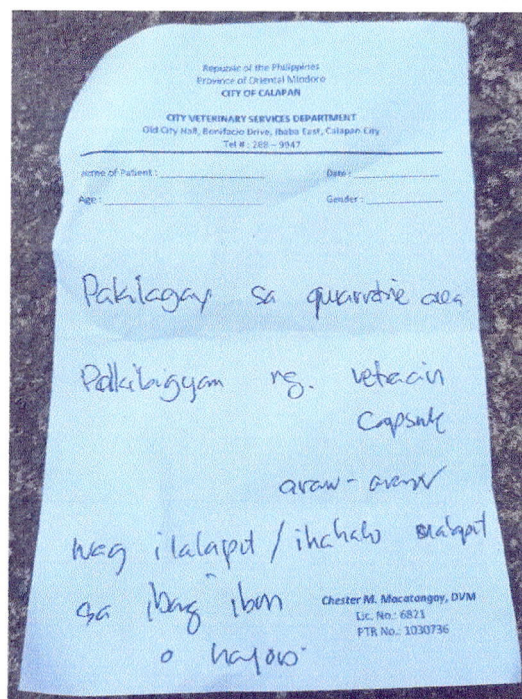 Republic of the Philippines
Province of Oriental Mindoro
CITY OF CALAPAN
CITY VETERINARY SERVICES DEPARTMENT
Old City Hall, Bonifacio Drive, Ibaba East, Calapan City
Tel # : 288 – 9947
Name of Patient : Date :
Age : Gender :
Pakilagay sa area
Pakibigyan ng. vetracin
Capsule
araw - araw
wag ilalapit / ihahalo
sa ibang ibon
o hayop.
Chester M. Macatangay, DVM
Lic. No.: 6821
PTR No.: 1030736